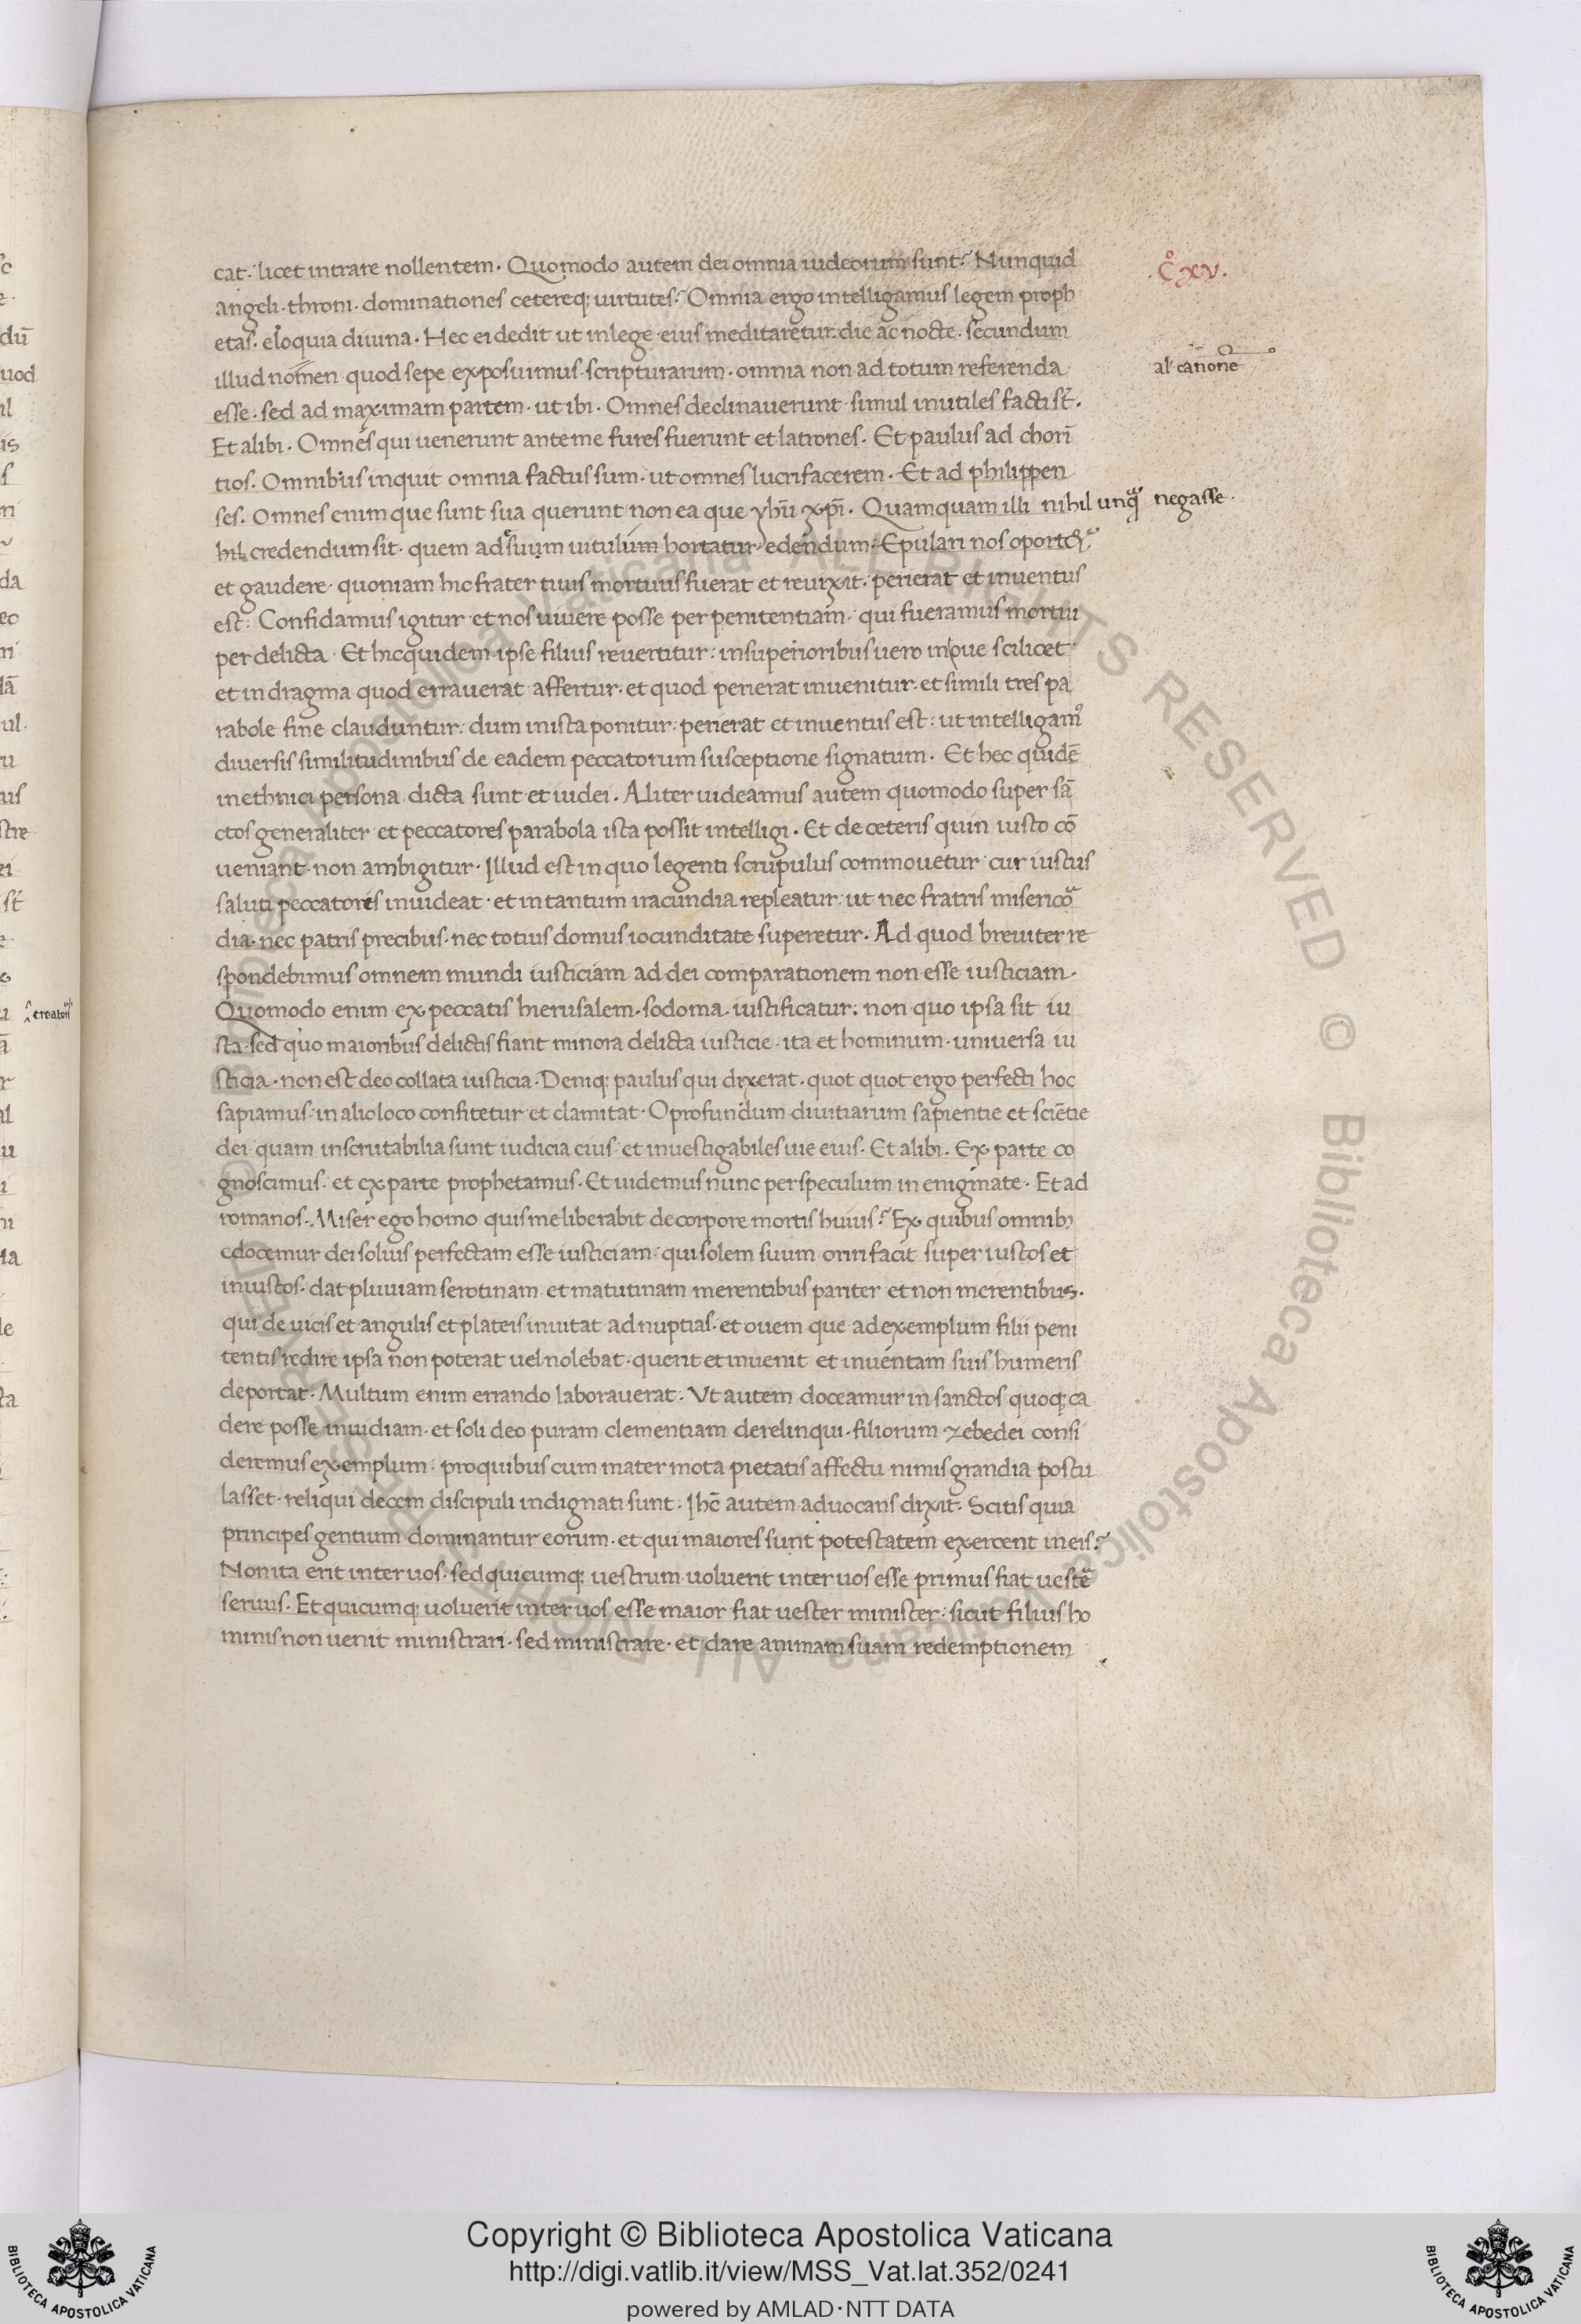 cat. licet intrare nollentem. Quomodo autem dei omnia iudeorum sunt? Nunquid
angeli. throni. dominationes cetereq; uirtutes? Omnia ergo intelligamus legem proph
etas. eloquia diuina. Hec ei dedit ut in lege eius meditaretur. die ac nocte. secundum
illud nomen quod sepe exposuimus. scripturarum. omnia non ad totum referenda
esse. sed ad maximam partem. ut ibi. Omnes declinauerunt simul inutiles facti st̃.
Et alibi. Omnes qui uenerunt ante me fures fuerunt et latrones. Et paulus ad chorĩ
tios. Omnibus inquit omnia factus sum. ut omnes lucrifacerem. Et ad philippen
ses. Omnes enim que sunt sua querunt non ea que yhũ xp̃i. Quamquam illi nihil unq̃ negasse.
hil credendum sit. quem ad suum uitulum hortatur edendum. Epulari nos oportet
et gaudere. quoniam hic frater tuus mortuus fuerat et reuixit. perierat et inuentus
est. Confidamus igitur et nos uiuere posse per penitentiam. qui fueramus mortui
per delicta. Et hic quidem ipse filius reuertitur: in superioribus uero in oue scilicet
et in dragma quod errauerat affertur. et quod perierat inuenitur. et simili tres pa
rabole fine clauduntur: dum in ista ponitur: perierat et inuentus est: ut intelligam9
diuersis similitudinibus de eadem peccatorum susceptione signatum. Et hec quidẽ
in ethnici persona dicta sunt et iudei. Aliter uideamus autem quomodo super sã
ctos generaliter et peccatores parabola ista possit intelligi. Et de ceteris quin iusto cõ
ueniant non ambigitur. Illud est in quo legenti scrupulus commouetur cur iustus
saluti peccatoris inuideat. et in tantum iracundia repleatur: ut nec fratris misericor
dia. nec patris precibus. nec totius domus iocunditate superetur. Ad quod breuiter re
spondebimus omnem mundi iusticiam ad dei comparationem non esse iusticiam.
Quomodo enim ex peccatis hierusalem. sodoma. iustificatur: non quo ipsa sit iu
sta. sed quo maioribus delictis fiant minora delicta iusticie. ita et hominum. uniuersa iu
sticia. non est deo collata iusticia. Deniq; paulus qui dixerat. quot quot ergo perfecti hoc
sapiamus: in alio loco confitetur et clamitat. O profundum diuitiarum sapientie et sciẽtie
dei quam inscrutabilia sunt iudicia eius et inuestigabiles uie eius. Et alibi. Ex parte co
gnoscimus. et ex parte prophetamus. Et uidemus nunc per speculum in enigmate. Et ad
romanos. Miser ego homo quis me liberabit de corpore mortis huius? Ex quibus omnib;
edocemur dei solius perfectam esse iusticiam. qui solem suum oriri facit super iustos et
iniustos. dat pluuiam serotinam et matutinam merentibus pariter et non merentibus.
qui de uicis et angulis et plateis inuitat ad nuptias. et ouem que ad exemplum filii peni
tentis redire ipsa non poterat uel nolebat. querit et inuenit et inuentam suis humeris
deportat. Multum enim errando laborauerat. Vt autem doceamur in sanctos quoq; ca
dere posse inuidiam. et soli deo puram clementiam derelinqui. filiorum zebedei consi
deremus exemplum: pro quibus cum mater mota pietatis affectu nimis grandia postu
lasset. reliqui decem discipuli indignati sunt. Ihc̃ autem aduocans dixit. Scitis quia
principes gentium dominantur eorum. et qui maiores sunt potestatem exercent in eis?
Non ita erit inter uos. sed quicumq; uestrum uoluerit inter uos esse primus fiat uester
seruus. Et quicumq; uoluerit inter uos esse maior fiat uester minister. sicut filius ho
minis non uenit ministrari. sed ministrare. et dare animam suam redemptionem
.C̊ xv.
al' canone
creatoris
Biblioteca Apostolica Vaticana ALL RIGHTS RESERVED ©
Copyright © Biblioteca Apostolica Vaticana
http://digi.vatlib.it/view/MSS_Vat.lat.352/0241
powered by AMLAD·NTT DATA
BIBLIOTECA APOSTOLICA VATICANA
BIBLIOTECA APOSTOLICA VATICANA